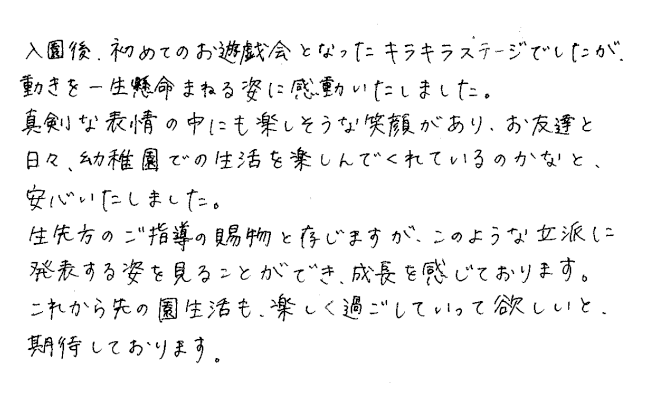 入園後、初めてのお遊戯会となったキラキラステージでしたが、
動きを一生懸命まねる姿に感動いたしました。
真剣な表情の中にも楽しそうな笑顔があり、お友達と
日々、幼稚園での生活を楽しんでくれているのかなと、
安心いたしました。
生先方のご指導の賜物と存じますが、このような立派に
発表する姿を見ることができ、成長を感じております。
これから先の園生活も、楽しく過ごしていって欲しいと、
期待しております。